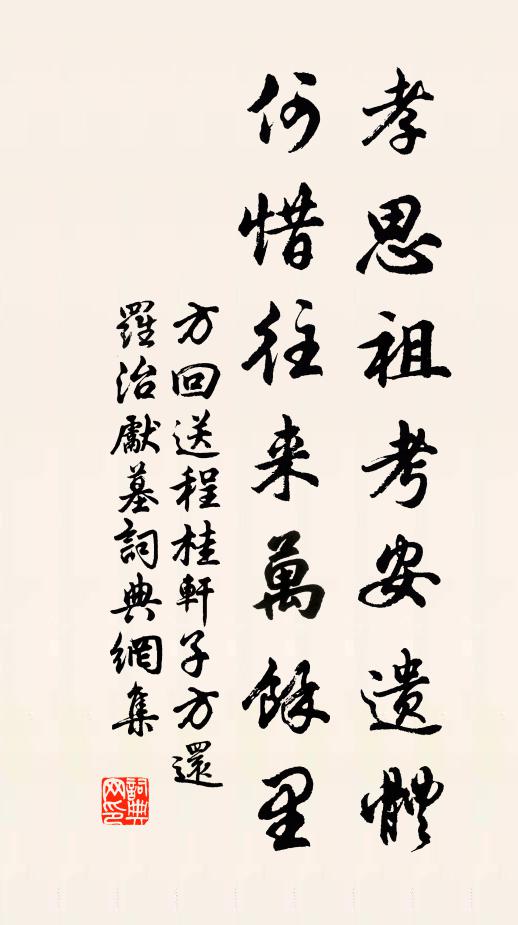 孝思祖考安遗體
何惜往来萬餘里
方回送程桂軒子方還
羅治獻墓詞典網集
詞典网印